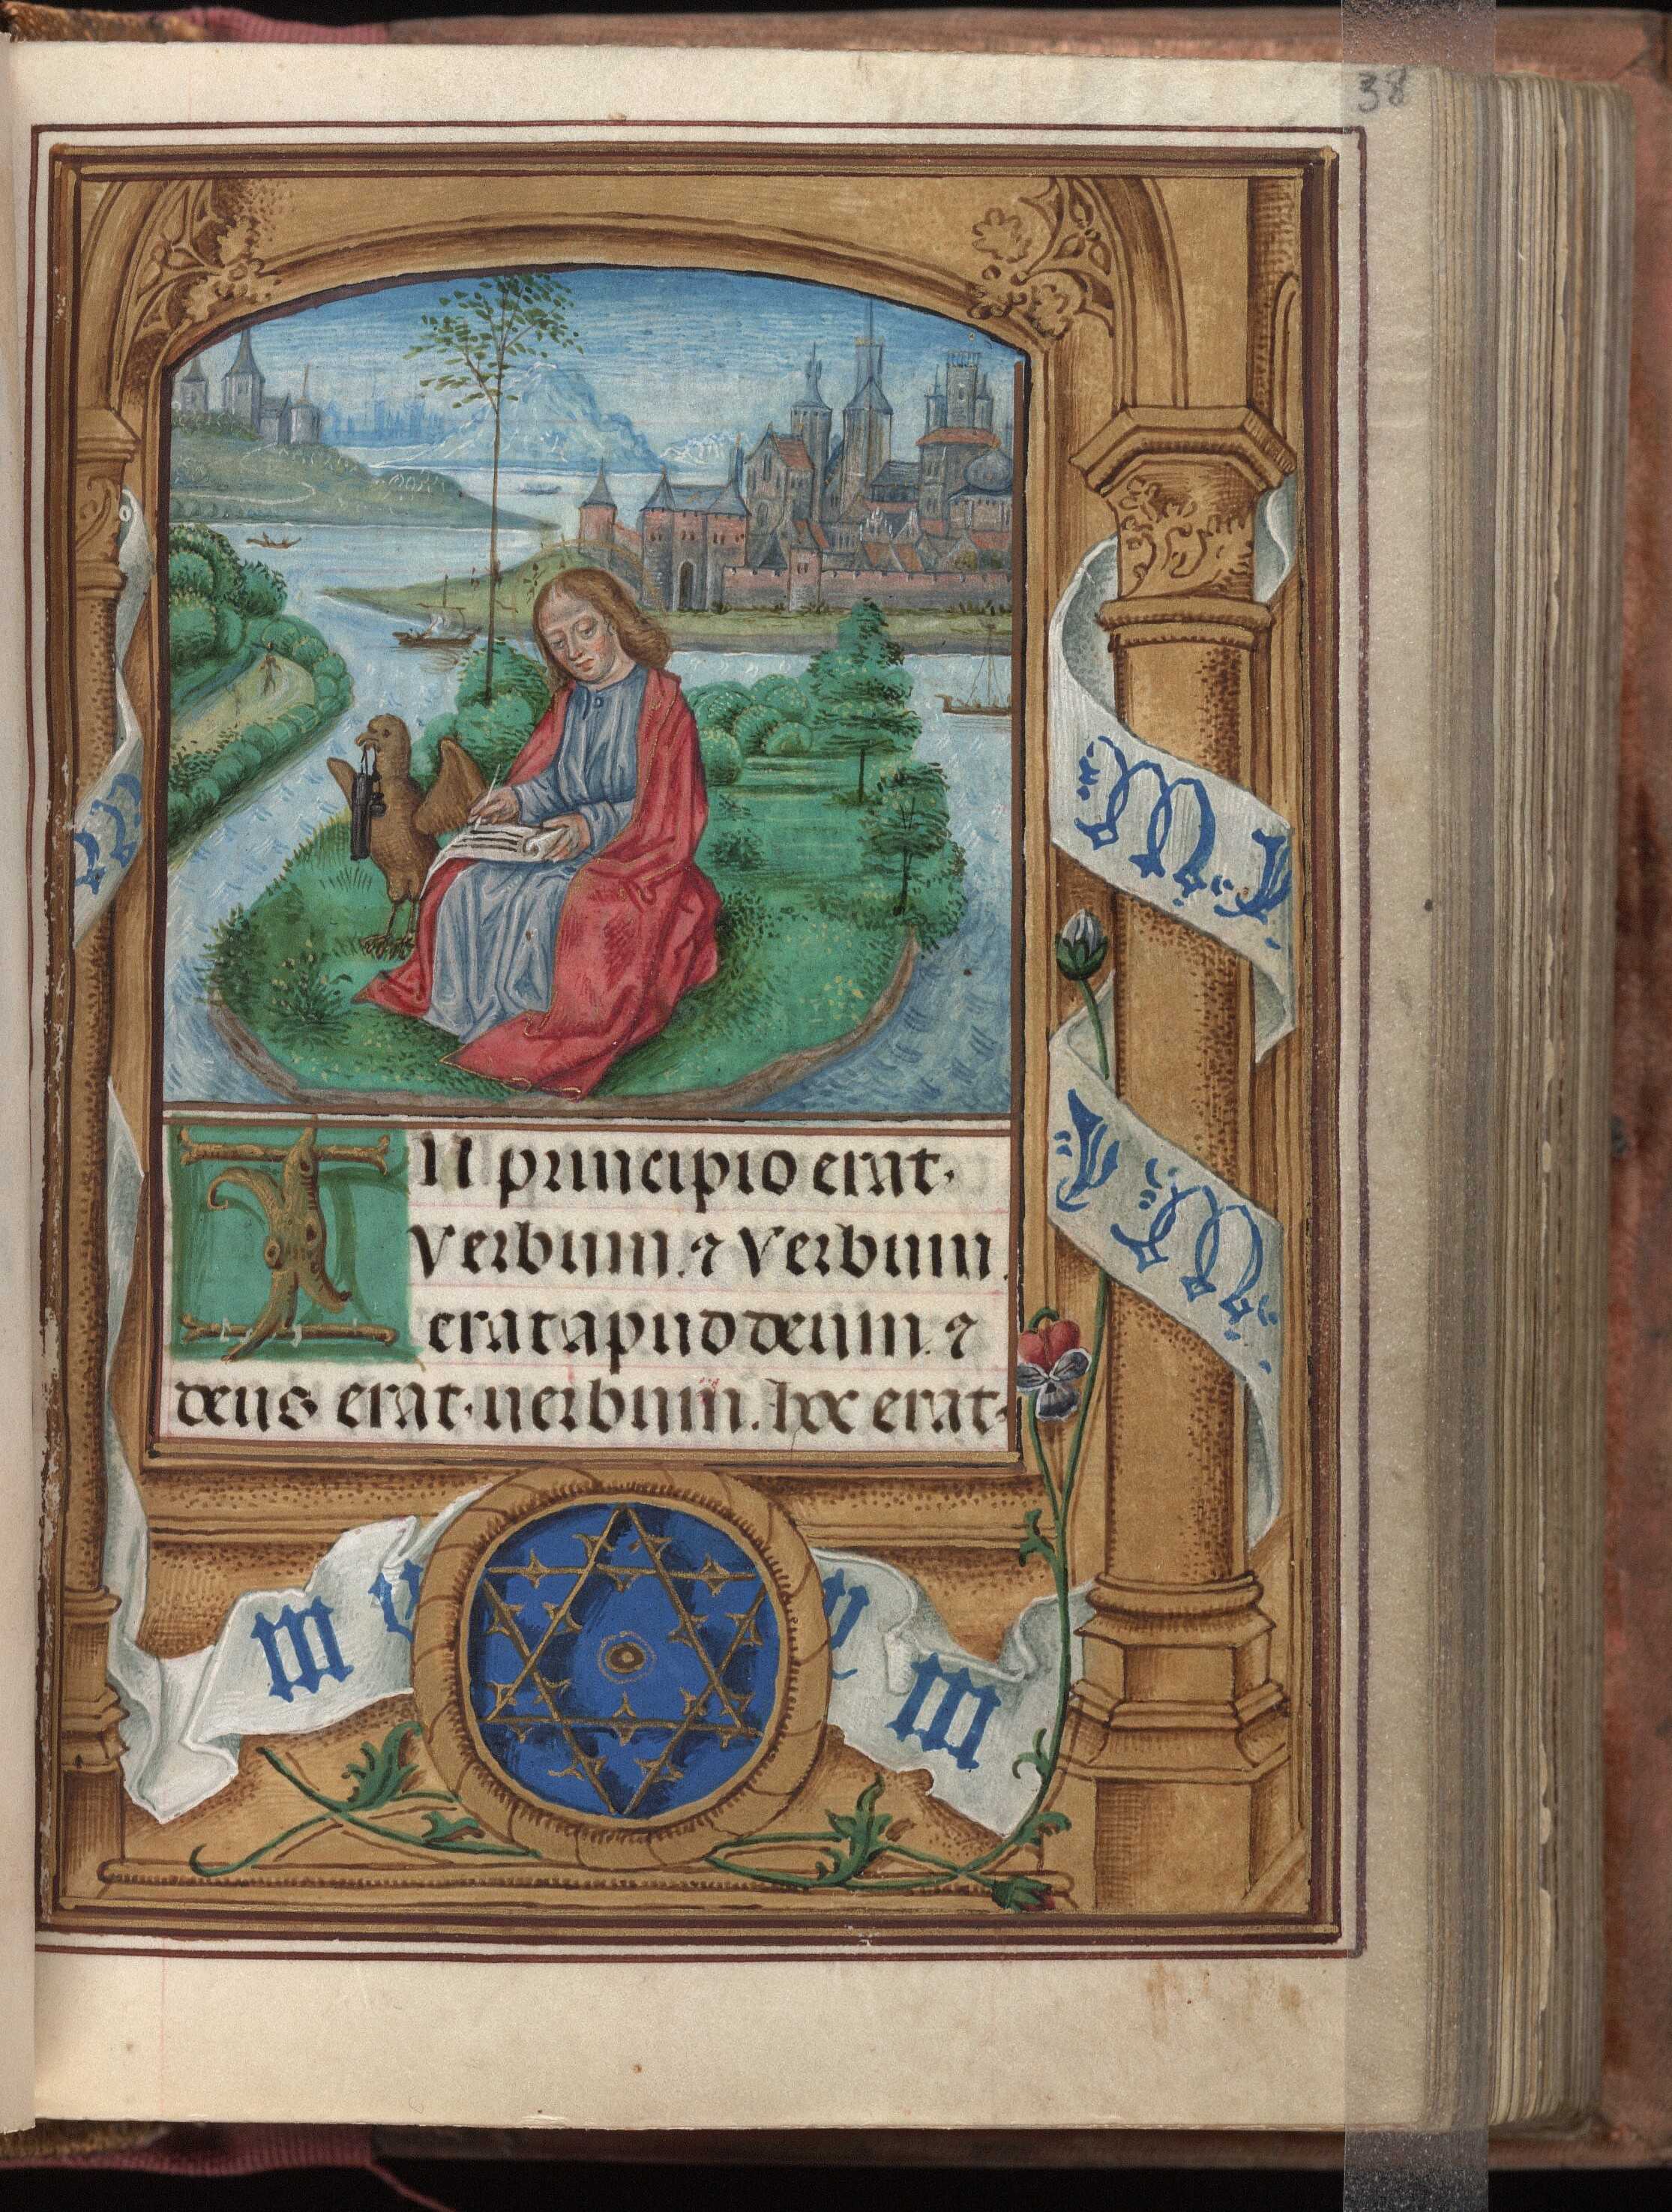 38
IN principio erat
verbum. ⁊ verbum
erat apud deum. ⁊
deus erat uerbum. hoc erat
M
M
m
m